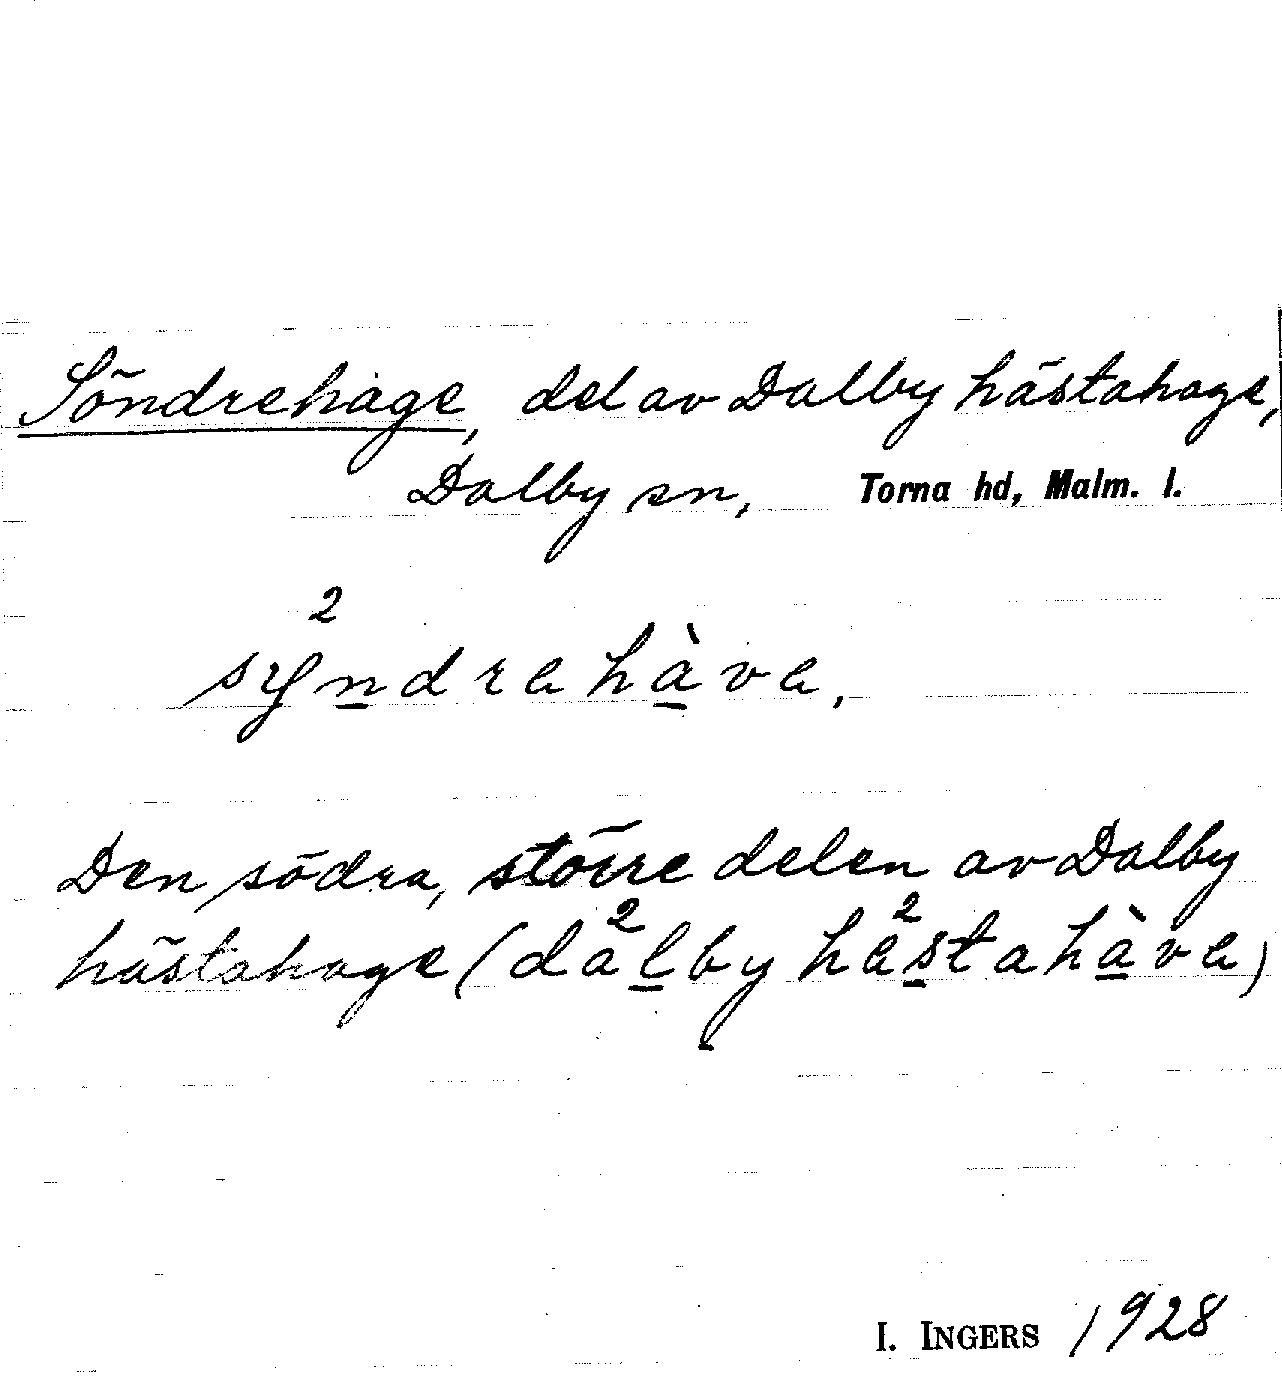 Söndrehage, del av Dalby hästahage,
Dalby sn, Torna hd, Malm. l.
2
syndrahàva,
Den södra, större delen av Dalby
hästahage (da²lby hä²stahàva)
I. INGERS 1928